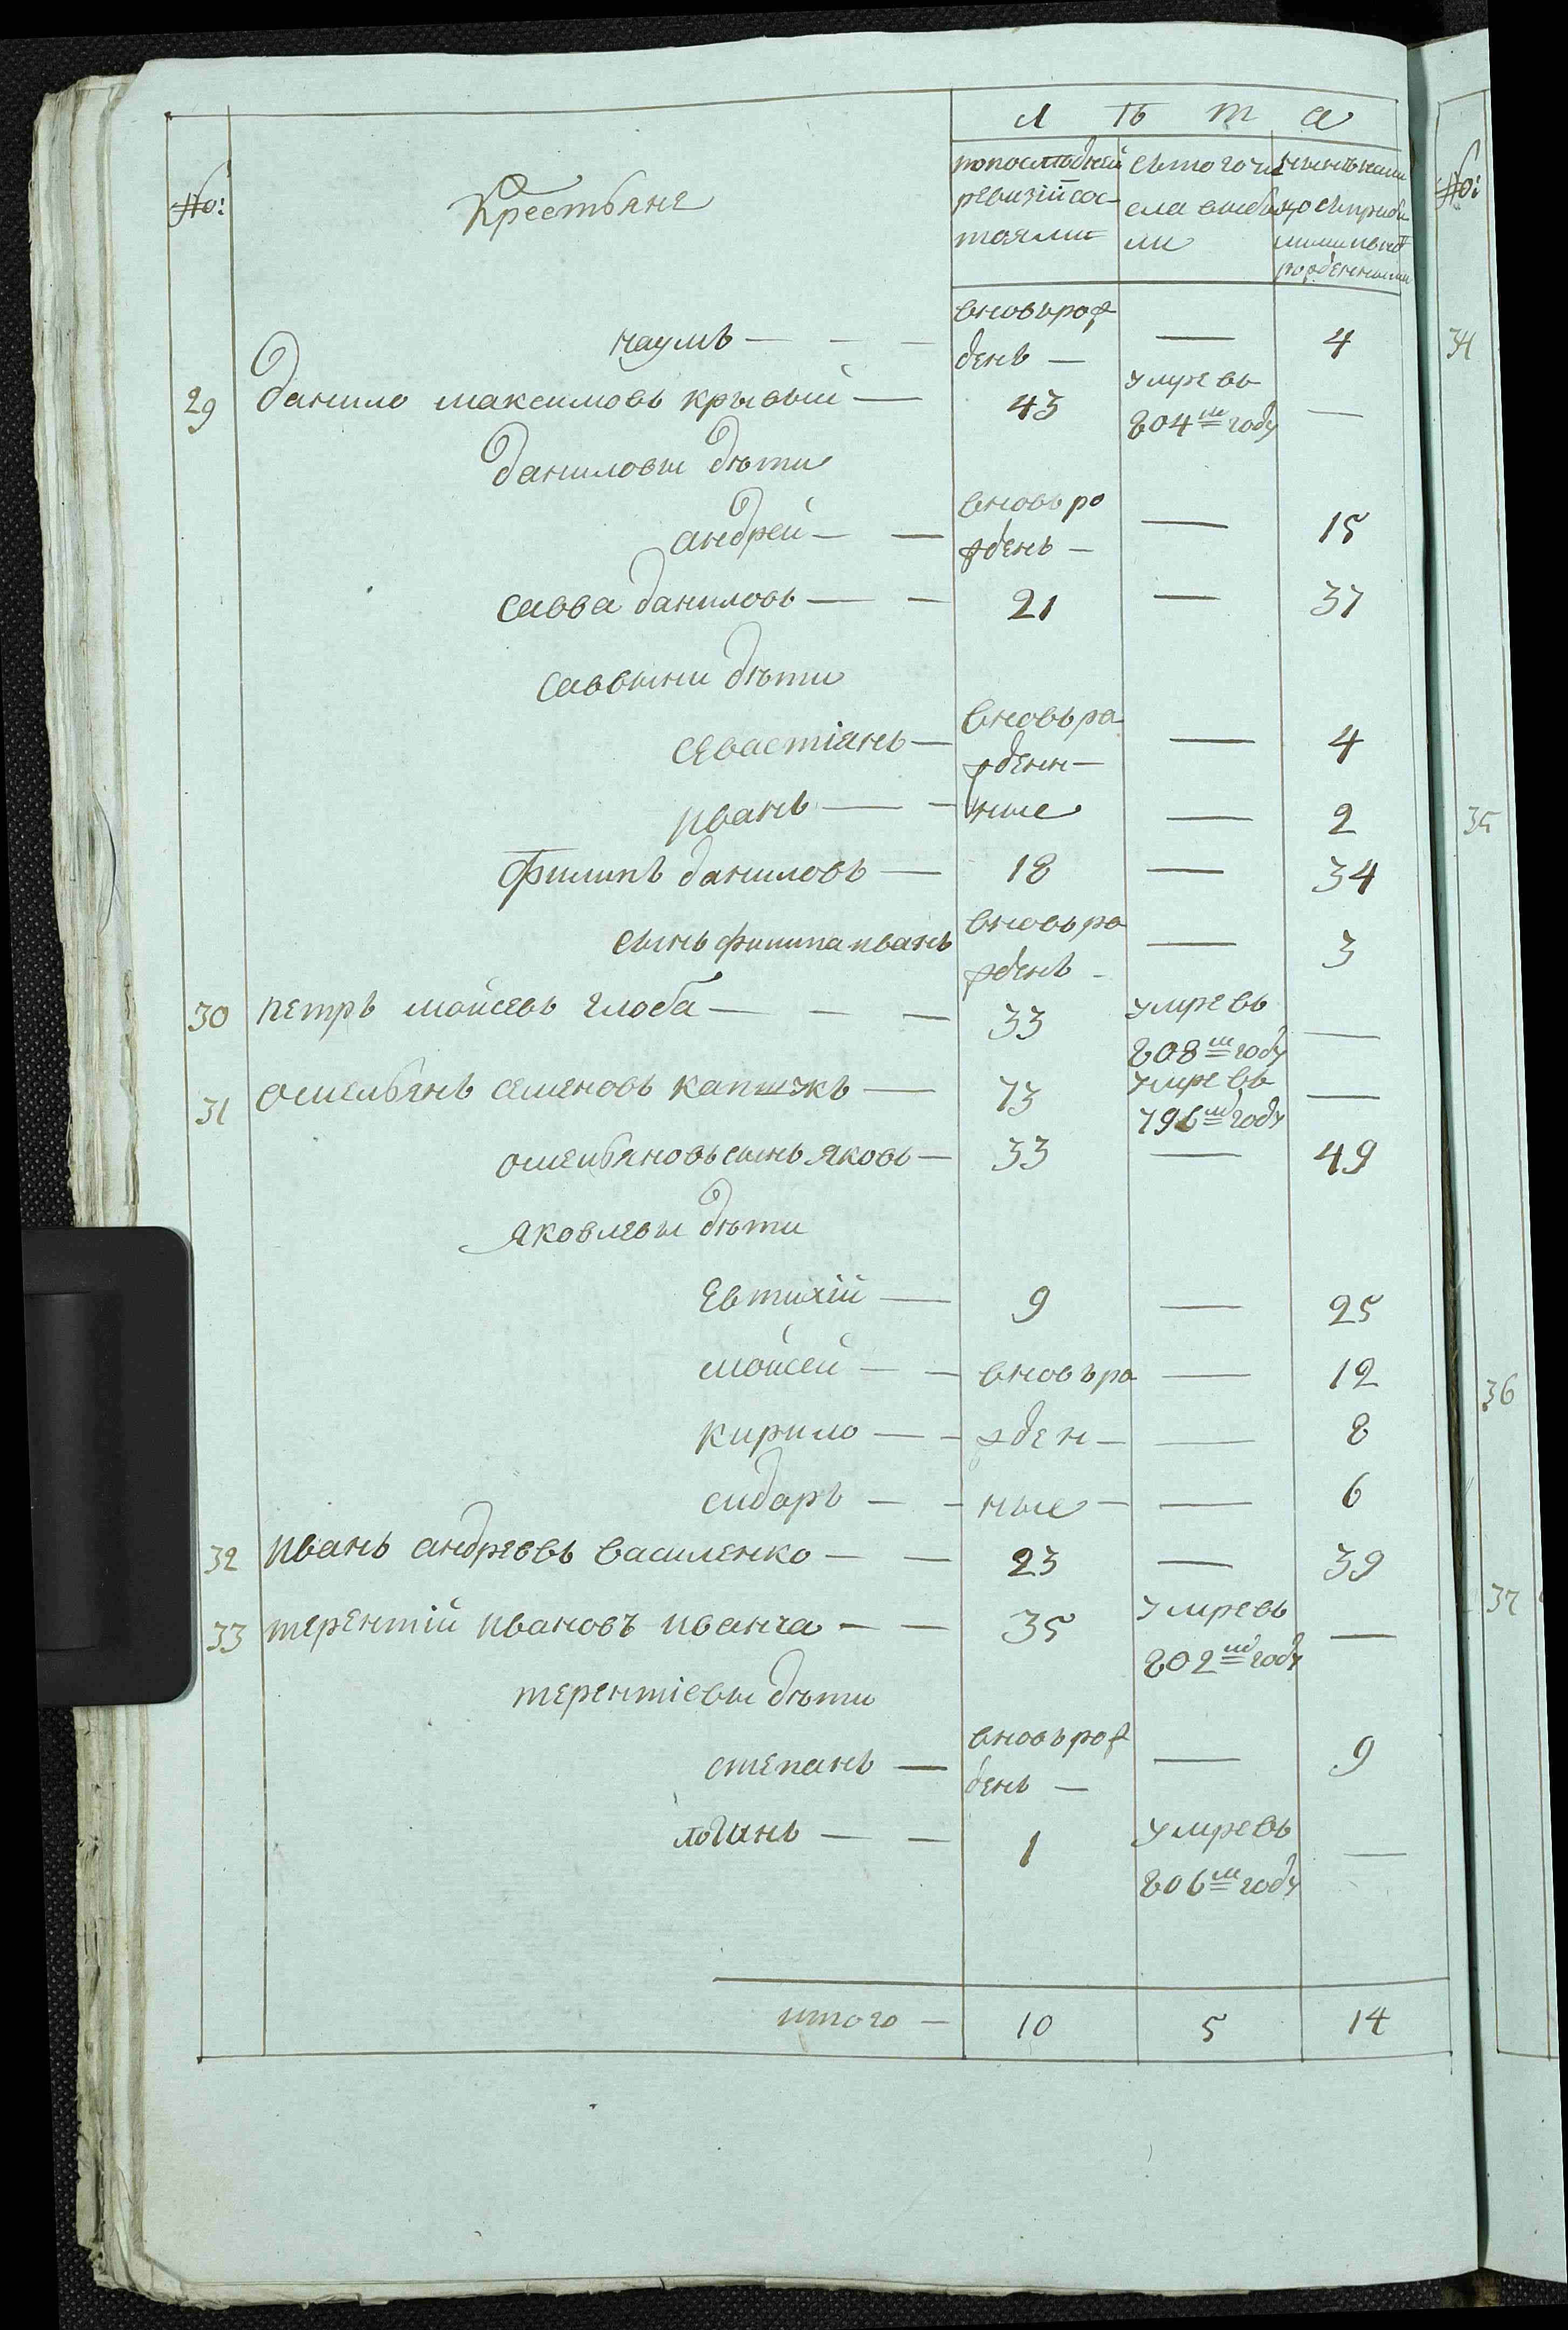 Л Ѣ Т А
№:
Крестьяне
попослѣдней ревизіи состояли
сътогочисла выбыли
нынѣналицо съприбылыми иновъ рожденными
наумъ — вновьрожденъ — — 4
29 данило максимовъ кривый — 43 умре въ 804мъ году —
даниловы дѣти
андрей — вновь рожденъ — — 15
савва даниловъ — 21 — 37
саввины дѣти
севастіянъ — вновь рожденн — — 4
иванъ — ные — 2
филипъ даниловъ — 18 — 34
сынъ филипа иванъ вновь рожденъ — — 3
30 петръ мойсеевъ глоба — 33 умре въ 808мъ году —
31 омельянъ семеновъ капшукъ — 73 умре въ 796мъ году —
омельяновъ сынъ яковъ — 33 — 49
яковлевы дѣти
евтихій — 9 — 25
мойсей — вновь ро — 12
кирило — жден — — 8
сидоръ — ные — — 6
32 иванъ андреевъ василенко — 23 — 39
33 терентій ивановъ иванча — 35 умре въ 802мъ году —
терентіевы дѣти
степанъ — вновь рожденъ — — 9
логинъ — 1 умре въ 806мъ году —
итого — 10 5 14
№:
34
35
36
37